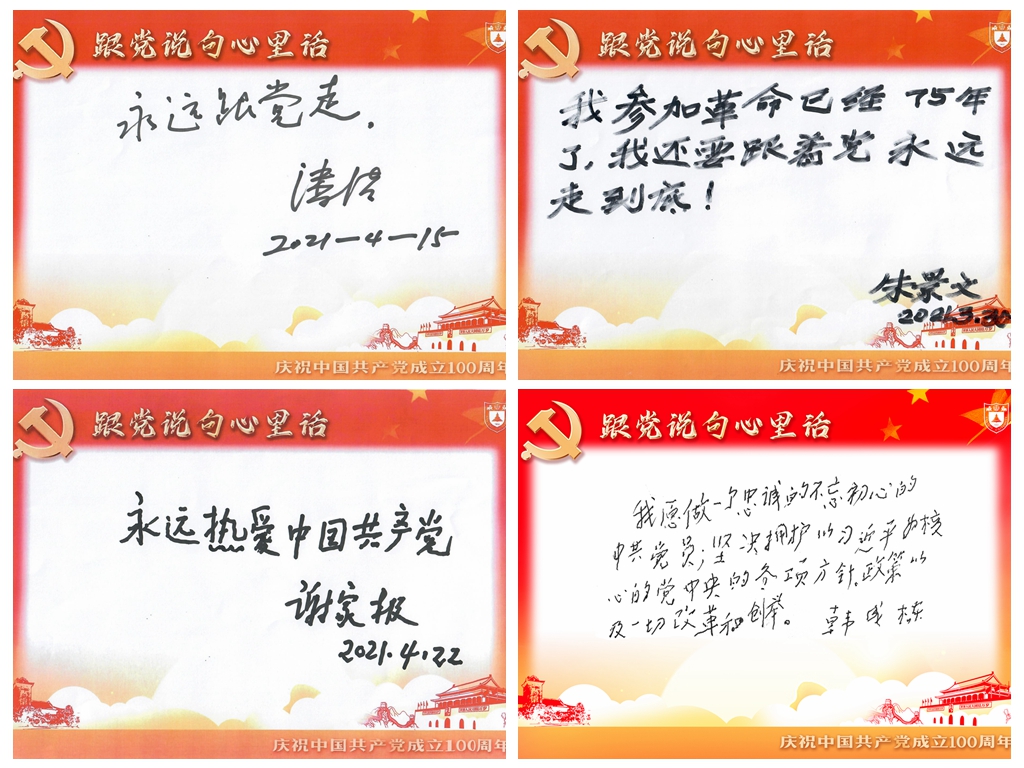 跟党说句心里话
永远跟党走.
2021-4-15
庆祝中国共产党成立100周年
跟党说句心里话
我参加革命已经75年
了,我还要跟着党永远
走到底!
朱景文
2021.3.30
庆祝中国共产党成立100周年
跟党说句心里话
永远热爱中国共产党
谢家极
2021.4.22
庆祝中国共产党成立100周年
跟党说句心里话
我愿做一个忠诚的不忘初心的
中共党员;坚决拥护以习近平为核
心的党中央的各项方针、政策以
及一切改革和创举。 韩成栋
庆祝中国共产党成立100周年